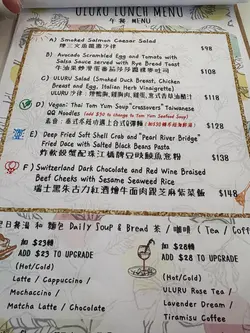 ULURU LUNCH MENU
午 MENU
A) Smoked Salmon Caesar Salad
煙三文魚凱撒沙律 $98
B) Avocado Scrambled Egg and Tomato with
Salsa Sauce served with Rye Bread Toast
$108
C) ULURU Salad (Smoked Duck Breast, Chicken
Breast and Egg, Italian Herb Vinaigrette)
$118
D) Vegan: Thai Tom Yum Soup "crossovers" Taiwanese
QQ Noodles (add $30 to change to Tom Yum Seafood Soup)
$88
E) Deep Fried Soft Shell Crab and "Pearl River Bridge"
Fried Dace with Salted Black Beans Pasta
炸軟殼蟹配珠江橋牌豆豉鯪魚意粉 $138
F) Switzerland Dark Chocolate and Red Wine Braised
Beef Cheeks with Sesame Seaweed Rice
瑞士黑朱古力紅酒燴牛面肉跟芝麻紫菜飯 $148
日餐湯 和 麵包 Daily Soup & Bread 茶 / 咖啡 ( Tea / Coff
加 $23轉
ADD $23 TO UPGRADE
(Hot/Cold)
Latte / Cappuccino /
Mochaccino /
Matcha Latte / Chocolate
加 $28轉
ADD $28 TO UPGRADE
(Hot/Cold)
ULURU Rose Tea /
Lavender Dream /
Tiramisu Coffee